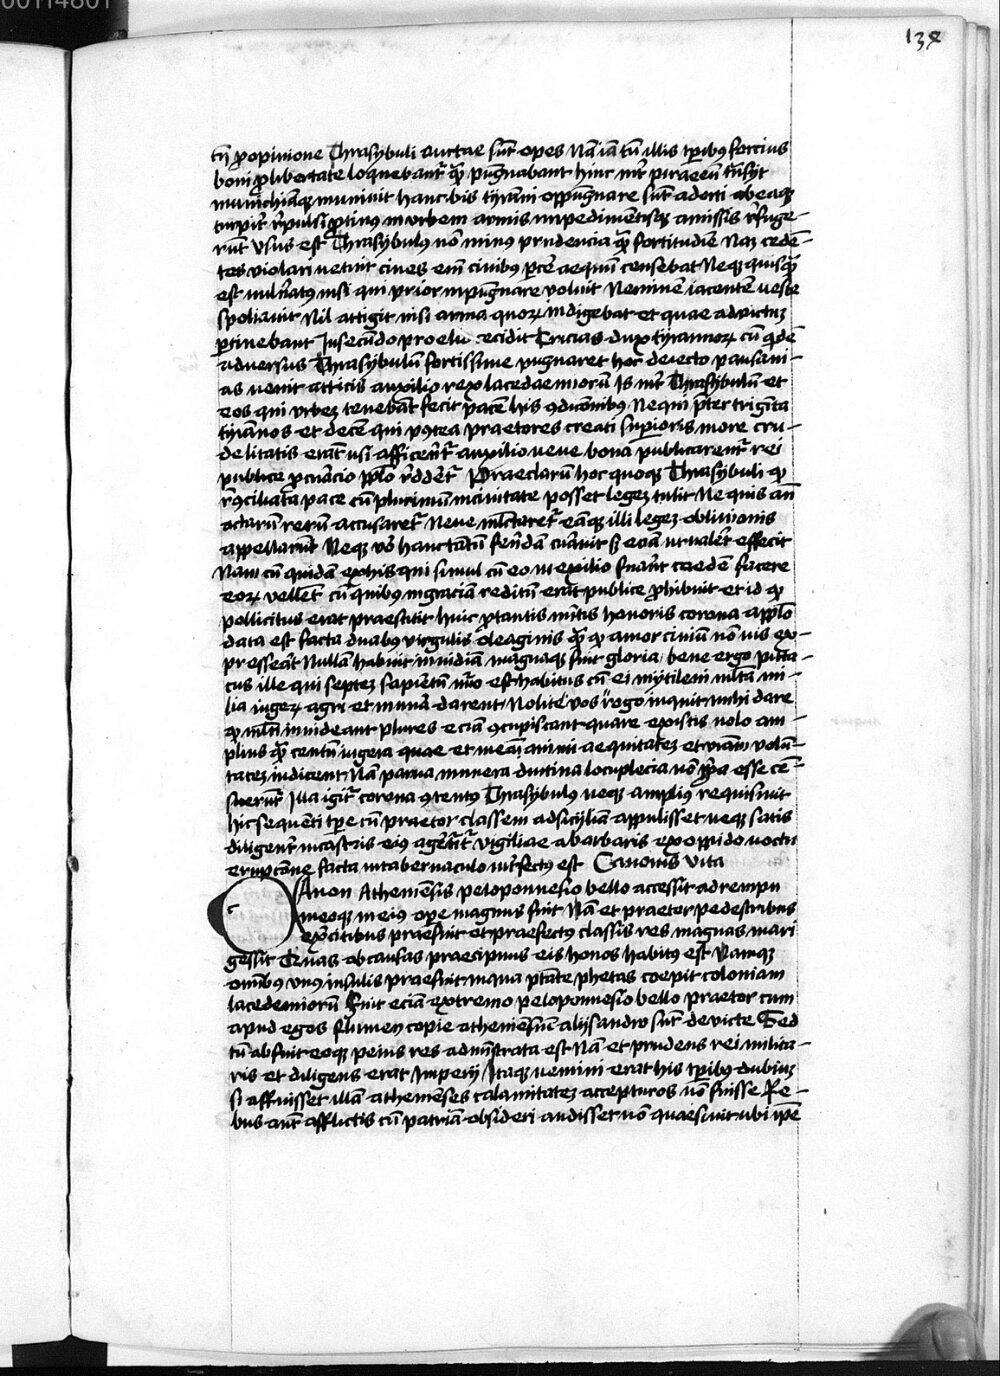 00114801
138
tn̄ p opinione Thrasybuli auctae sūt opes Nā iā tū illis tp̄ibꝰ forcius
boni ꝓ libertate loquebant̄ q̄ꝫ pūgnabant hinc int̄ piraeeū trāsijt
munichiāqꝫ muniuit hanc bis tyrāni oppūgnare sūt adorti ab eaqꝫ
turpit̄ r̄pulsi ꝓtinꝰ in vrbem armis impedimētisqꝫ amissis r̄fuge-
rūt Vsus est Thrasybulꝰ nō minꝰ prudencia q̄ꝫ fortitudīe Naꝫ cedē-
tes violari uetuit ciues em̄ ciuibꝰ ꝑcē aequū censebat Neqꝫ quisq̄ꝫ
est uuln̄atꝰ nisi qui prior inpūgnare voluit Neminē iacentē ueste
spoliauit Nil attigit nisi arma quoꝝ indigebat et quae ad victuꝫ
ꝑtinebant In secūdo proelio cecidit Cricias dux tyrannoꝝ cū qdē
aduersus Thrasybulū fortissime pugnaret hoc deiecto pausani-
as uenit atticis auxilio rex lacedaemioru Is int̄ Thrasybulū et
eos qui vrbeꝫ tenebāt fecit pacē hijs ꝯdicōnibus Ne qui p̄ter triginta
tyrānos et decē qui postea praetores creati sup̄ioris more cru-
delitatis erāt usi afficerēt̄ auxilio neue bona publicarent̄ rei
publice ꝓcuracio pplo r̄ddēt̄ Praeclarū hoc quoqꝫ Thrasybuli qͩ
r̄ꝯciliata pace cū plurimū in ciuitate posset legeꝫ tulit Ne quis an̄
actarū rerū accusaret̄ Neue mlctaret̄ eāqꝫ illi legeꝫ obliuionis
appellarūt Neqꝫ vo hanc tātū fer̄ndā curauit sꝫ eciā ut valer̄ effecit
Nam cū quidā ex his qui simul cū eo in exilio fuāt caedē facere
eoꝝ vellēt cū quibus in graciā reditū erāt publice ꝓhibuit et id qͩ
pollicitus erat praestitit huic ꝓ tantis mitis honoris corona a pplo
data est facta duabꝰ virgulis oleaginis q̄ꝫ qͩ amor ciuiū nō uis ex-
presseāt Nullā habuit inuidiā magnaqꝫ fuit gloria bene ergo pitta-
cus ille qui septeꝫ sapientū nūo est habitus cū ei mytileni mlta mi-
lia iugeꝝ agri et munā darent Nolite vos rogo inquit mihi dare
qͩ mlti inuideant plures eciā ꝯcupiscant quare ex istis nolo am-
plius q̄ꝫ centū iugera quae et meā animi aequitateꝫ et vram volū-
tateꝫ indicent Nā parua munera diutina locuplecia nō ppa esse cō-
suerūt Illa igit̄ corona ꝯtentꝰ Thrasybulꝰ neqꝫ amplius requisiuit
hic sequēti tpe cū praetor classem ad siciliā appulisset neqꝫ satis
diligent̄ in castris eiꝰ agerēt̄ vigiliae a barbaris ex oppido noctu
erupcōne facta in tabernaculo int̄fectꝰ est Conōnis vita
Anon Athemēsis peloponnesio bello accessit ad rem pu
meoqꝫ in eiꝰ opē magnus fuit Nā et praetor pedestribus
exercitibus praefuit et praefectꝰ classis res magnas mari
gessit Cruas ob causas praecipuus eis honos habitꝰ est Namqꝫ
omībꝰ vnꝰ insulis praefuit in qua ptāte phetas coepit coloniam
lacedemiorū Fuit eciā extremo peloponnesio bello praetor cum
apud egos flumen copie atheniēsiū a lijsandro sūt devicte Sed
tū abfuit eoqꝫ peius res admīstrata est Nā et prudens rei milita-
ris et diligens erat Imperij Itaqꝫ nemini erat his tpibꝰ dubiuꝫ
si affuisset illā atheniēses calamitateꝫ accepturos nō fuisse Re-
bus aut̄ afflictis cū patriā obsideri audisset nō quaesiuit ubi ipē